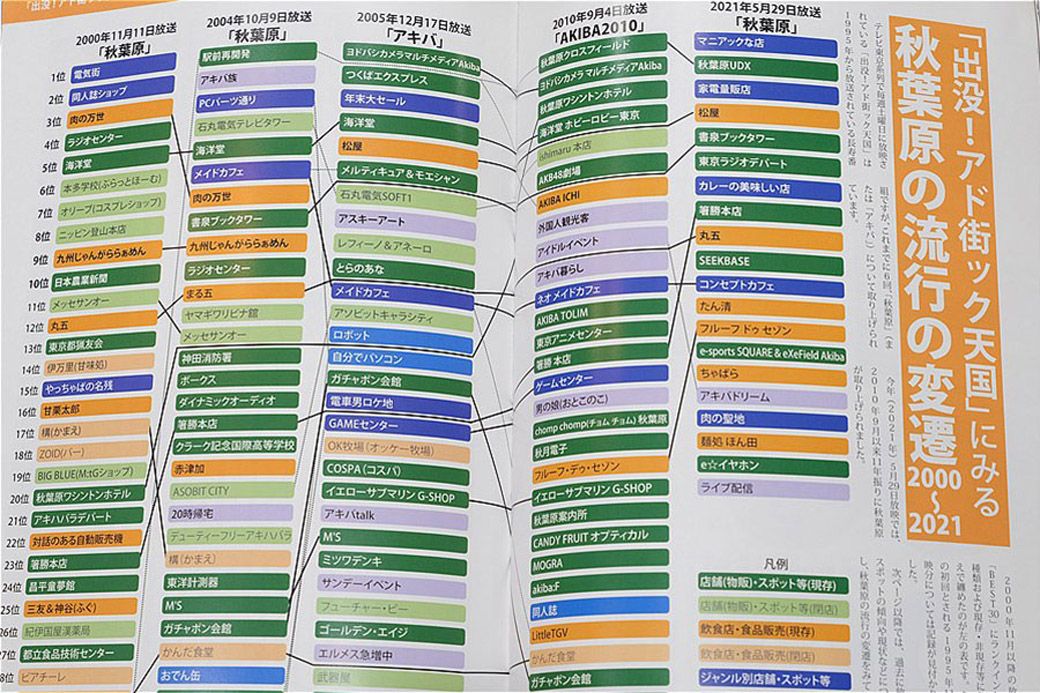 「出没！アド街ック天国」にみる
秋葉原の流行の変遷
2000
～
2021
テレビ東京系列で毎週土曜日に放映さ
れている「出没！アド街ック天国」は
1995年から放送されている長寿番
組ですが、これまでに6回、「秋葉原」（ま
たは「アキバ」）について取り上げられ
ています。
今年（2021年）5月29日放映では、
2010年9月以来11年振りに秋葉原
が取り上げられました。
2000年11月11日放送
「秋葉原」
1位 電気街
2位 同人誌ショップ
3位 肉の万世
4位 ラジオセンター
5位 海洋堂
6位 本多学校(ぷらっとほーむ)
7位 オリーブ(コスプレショップ)
8位 ニッピン登山本店
9位 九州じゃんがららぁめん
10位 日本農業新聞
11位 メッセサンオー
12位 丸五
13位 東京都猟友会
14位 伊万里(甘味処)
15位 やっちゃばの名残
16位 甘栗太郎
17位 構(かまえ)
18位 ZOID(バー)
19位 BIG BLUE(M:tGショップ)
20位 秋葉原ワシントンホテル
21位 アキハバラデパート
22位 対話のある自動販売機
23位 箸勝本店
24位 昌平童夢館
25位 三友＆神谷(ふぐ)
26位 紀伊国屋漢薬局
27位 都立食品技術センター
ピアチーレ
2004年10月9日放送
「秋葉原」
駅前再開発
アキバ族
PCパーツ通り
石丸電気テレビタワー
海洋堂
メイドカフェ
肉の万世
書泉ブックタワー
九州じゃんがららぁめん
ラジオセンター
まる五
ヤマギワリビナ館
メッセサンオー
神田消防署
ボークス
ダイナミックオーディオ
箸勝本店
クラーク記念国際高等学校
赤津加
ASOBIT CITY
20時帰宅
デューティーフリーアキハバラ
構(かまえ)
東洋計測器
M'S
ガチャポン会館
かんだ食堂
おでん缶
2005年12月17日放送
「アキバ」
ヨドバシカメラマルチメディアAkiba
つくばエクスプレス
年末大セール
海洋堂
松屋
メルティキュア＆モエシャン
石丸電気SOFT1
アスキーアート
レフィーノ＆アネーロ
とらのあな
メイドカフェ
アソビットキャラシティ
ロボット
自分でパソコン
ガチャポン会館
電車男ロケ地
GAMEセンター
OK牧場(オッケー牧場)
COSPA (コスパ)
イエローサブマリン G-SHOP
アキバtalk
M'S
ミツワデンキ
サンデーイベント
フューチャー・ビー
ゴールデン・エイジ
エルメス急増中
武器屋
2010年9月4日放送
「AKIBA2010」
秋葉原クロスフィールド
ヨドバシカメラ マルチメディアAkiba
秋葉原ワシントンホテル
海洋堂 ホビーロビー東京
ishimaru 本店
AKB48劇場
AKIBA ICHI
外国人観光客
アイドルイベント
アキバ暮らし
ネオ メイドカフェ
AKIBA TOLIM
東京アニメセンター
箸勝 本店
ゲームセンター
男の娘(おとこのこ)
chomp chomp(チョム チョム) 秋葉原
秋月電子
フルーフ・デゥ・セゾン
イエローサブマリン G-SHOP
秋葉原案内所
CANDY FRUIT オプティカル
MOGRA
akiba:F
同人誌
LittleTGV
かんだ食堂
ガチャポン会館
2021年5月29日放送
「秋葉原」
マニアックな店
秋葉原UDX
家電量販店
松屋
書泉ブックタワー
東京ラジオデパート
カレーの美味しい店
箸勝本店
丸五
SEEKBASE
コンセプトカフェ
たん清
フルーフ ドゥ セゾン
e-sports SQUARE & eXeField Akiba
ちゃばら
アキバドリーム
肉の聖地
麺処 ほん田
e☆イヤホン
ライブ配信
凡例
店舗(物販)・スポット等(現存)
店舗(物販)・スポット等(閉店)
飲食店・食品販売(現存)
飲食店・食品販売(閉店)
ジャンル別店舗・スポット等